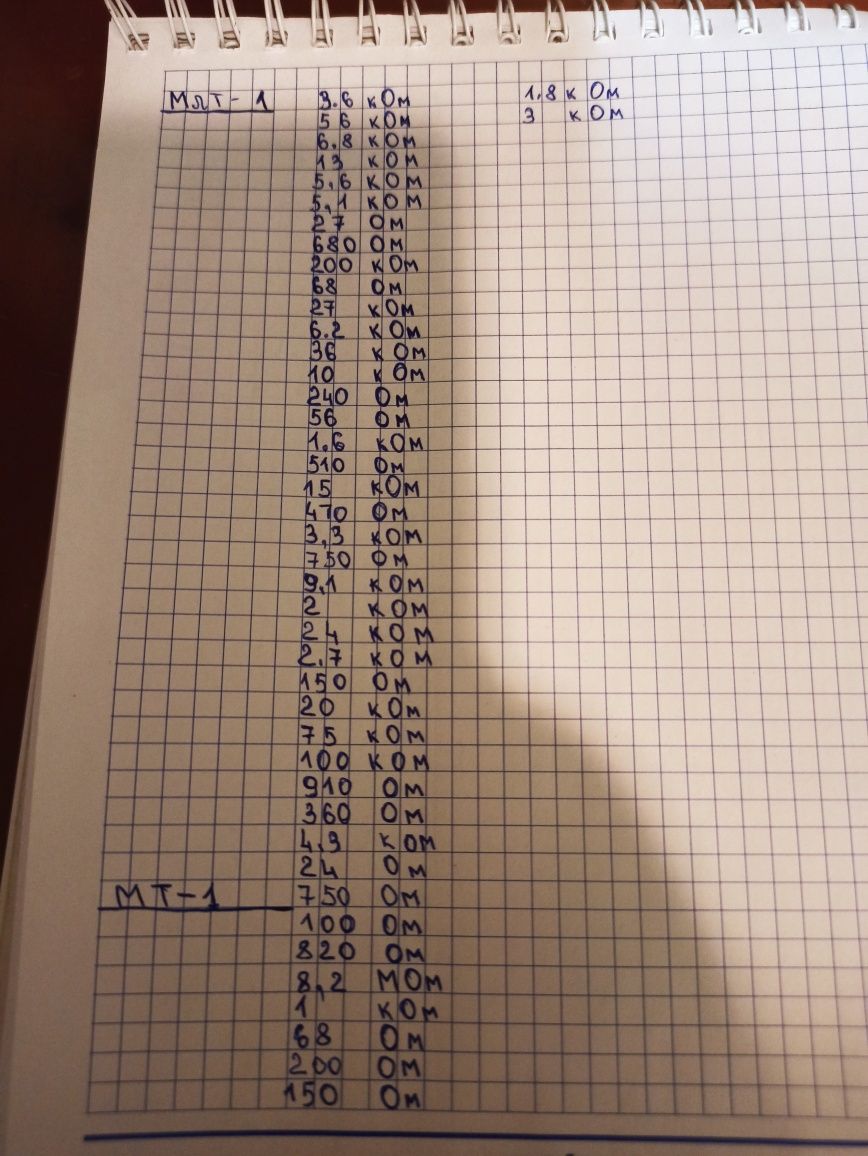 МлТ-1 3.6 кОм 1,8 кОм
56 кОм 3 кОм
6.8 кОм
13 кОм
5,6 кОм
5,1 кОм
27 Ом
680 Ом
200 кОм
68 Ом
27 кОм
6.2 кОм
36 кОм
10 кОм
240 Ом
56 Ом
1,6 кОм
510 Ом
15 кОм
470 Ом
3,3 кОм
750 Ом
9,1 кОм
2 кОм
24 кОм
2.7 кОм
150 Ом
20 кОм
75 кОм
100 кОм
910 Ом
360 Ом
4,3 кОм
24 Ом
МТ-1 750 Ом
100 Ом
820 Ом
8,2 МОм
1 кОм
68 Ом
200 Ом
150 Ом